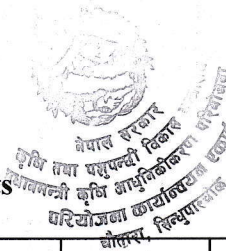 नेपाल सरकार
कृषि तथा पशुपन्छी विकास
प्रधानमन्त्री कृषि आधुनिकीकरण परियोजना
परियोजना कार्यान्वयन एकाइ
चौतारा, सिन्धुपाल्चोक
s